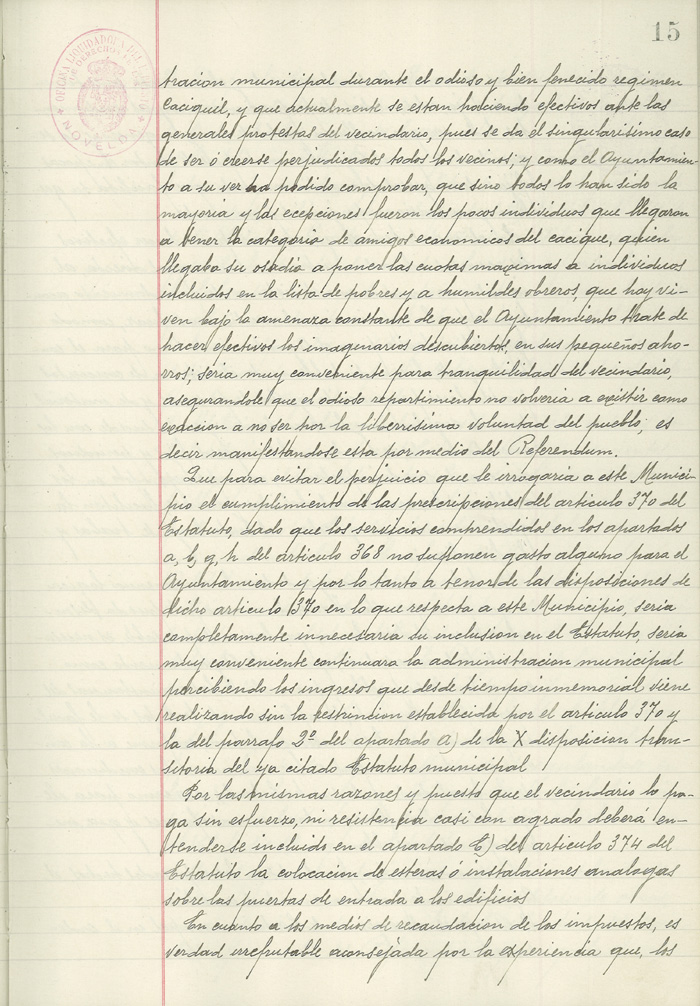 15
OFICINA LIQUIDADORA DEL
DE DERECHOS
NOVELDA
tracion municipal durante el odioso y bien fenecido regimen
Caciquil, y que actualmente se estan haciendo efectivos ante las
generales protestas del vecindario, pues se da el singularisimo caso
de ser ó creerse perjudicados todos los vecinos; y como el Ayuntamien-
to a su ver ha podido comprobar, que sino todos lo han sido la
mayoria y las ecepciones fueron los pocos individuos que llegaron
a tener la categoria de amigos economicos del cacique, quien
llegaba su osadia a poner las cuotas maximas a individuos
incluidos en la lista de pobres y a humildes obreros, que hoy vi-
ven bajo la amenaza constante de que el Ayuntamiento trate de
hacer efectivos los imaginarios descubiertos, en sus pequeños aho-
rros; seria muy conveniente para tranquilidad del vecindario,
asegurandole que el odioso repartimiento no volveria a existir como
exaccion a no ser por la liberrisima voluntad del pueblo; es
decir manifestandose esta por medio del Referendum.
Que para evitar el perjuicio que le irrogaria a este Munici-
pio el cumplimiento de las prescripciones del articulo 370 del
Estatuto, dado que los servicios comprendidos en los apartados
a, b, g, h del articulo 368 no suponen gasto alguno para el
Ayuntamiento y por lo tanto a tenor de las disposiciones de
dicho articulo 370 en lo que respecta a este Municipio, seria
completamente innecesaria su inclusion en el Estatuto, seria
muy conveniente continuara la administracion municipal
percibiendo los ingresos que desde tiempo inmemorial viene
realizando sin la restrincion establecida por el articulo 370 y
la del parrafo 2º del apartado a) de la X disposicion tran-
sitoria del ya citado Estatuto municipal
Por las mismas razones y puesto que el vecindario lo pa-
ga sin esfuerzo, ni resistencia casi con agrado deberá en-
tenderse incluido en el apartado C) del articulo 374 del
Estatuto la colocacion de esteras ó instalaciones analogas
sobre las puertas de entrada a los edificios
En cuanto a los medios de recaudacion de los impuestos, es
verdad irrefutable aconsejada por la experiencia que, los